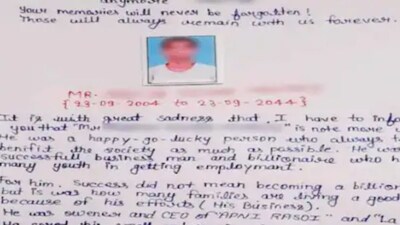 anymore
Your memories will never be forgotten!
Those will always remain with us forever.
MR.
[23-09-2004 to 23-09-2044]
It is with great sadness that, I have to info
you that "Mr is note more w
He was a happy-go-lucky person who always t
benifit the society as much as possible. He wa
successfull business man and billionaire who h
many youth in getting employment.
For him, success did not mean becoming a billion
but is was how many families are living a good
because of his efforts (His Business).
He was owener and CEO of "APNI RASOI" and "La